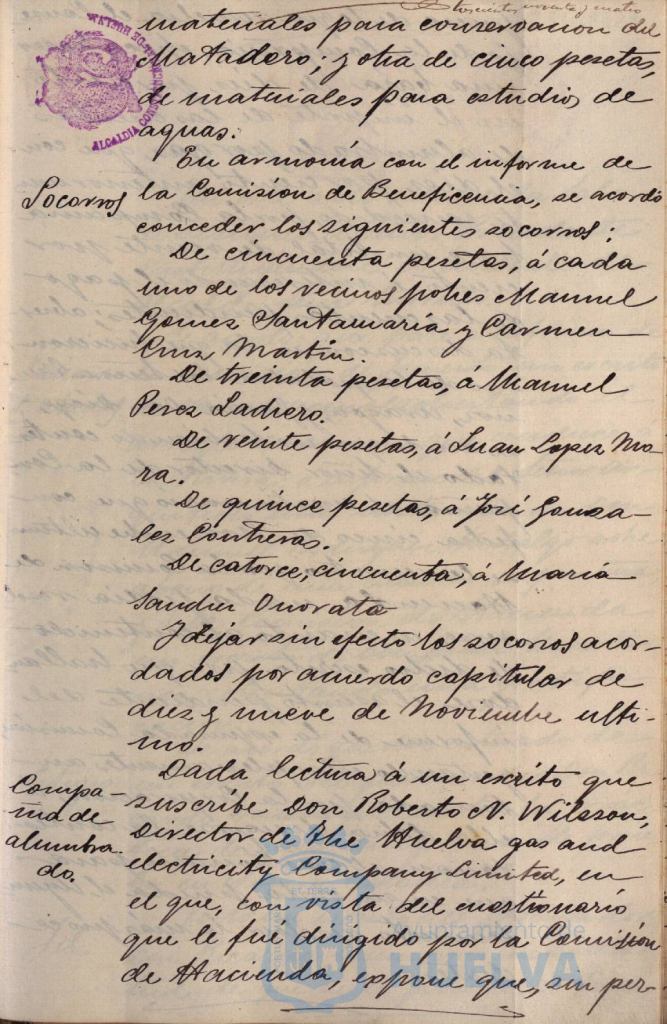 materiales para conservacion del
Matadero; y otra de cinco pesetas,
de materiales para estudios de
aguas.
En armonía con el informe de
Socorros
la Comision de Beneficencia, se acordó
conceder los siguientes socorros:
De cincuenta pesetas, á cada
uno de los vecinos pobres Manuel
Gomez Santamaría y Carmen
Cruz Martin.
De treinta pesetas, á Manuel
Perez Ladrero.
De veinte pesetas, á Juan Lopez Mo-
ra.
De quince pesetas, á José Gonza-
lez Contreras.
De catorce, cincuenta, á María
Sanchez Onorata
Y dejar sin efecto los socorros acor-
dados por acuerdo capitular de
diez y nueve de Noviembre ulti-
mo.
Compa-
ñia de
alumbra-
do.
Dada lectura á un escrito que
suscribe Don Roberto N. Wilsson,
Director de the Huelva gas and
electricity Company Limited, en
el que, con vista del cuestionario
que le fué dirigido por la Comision
de Hacienda, expone que, sin per-
Ayuntamiento de
HUELVA